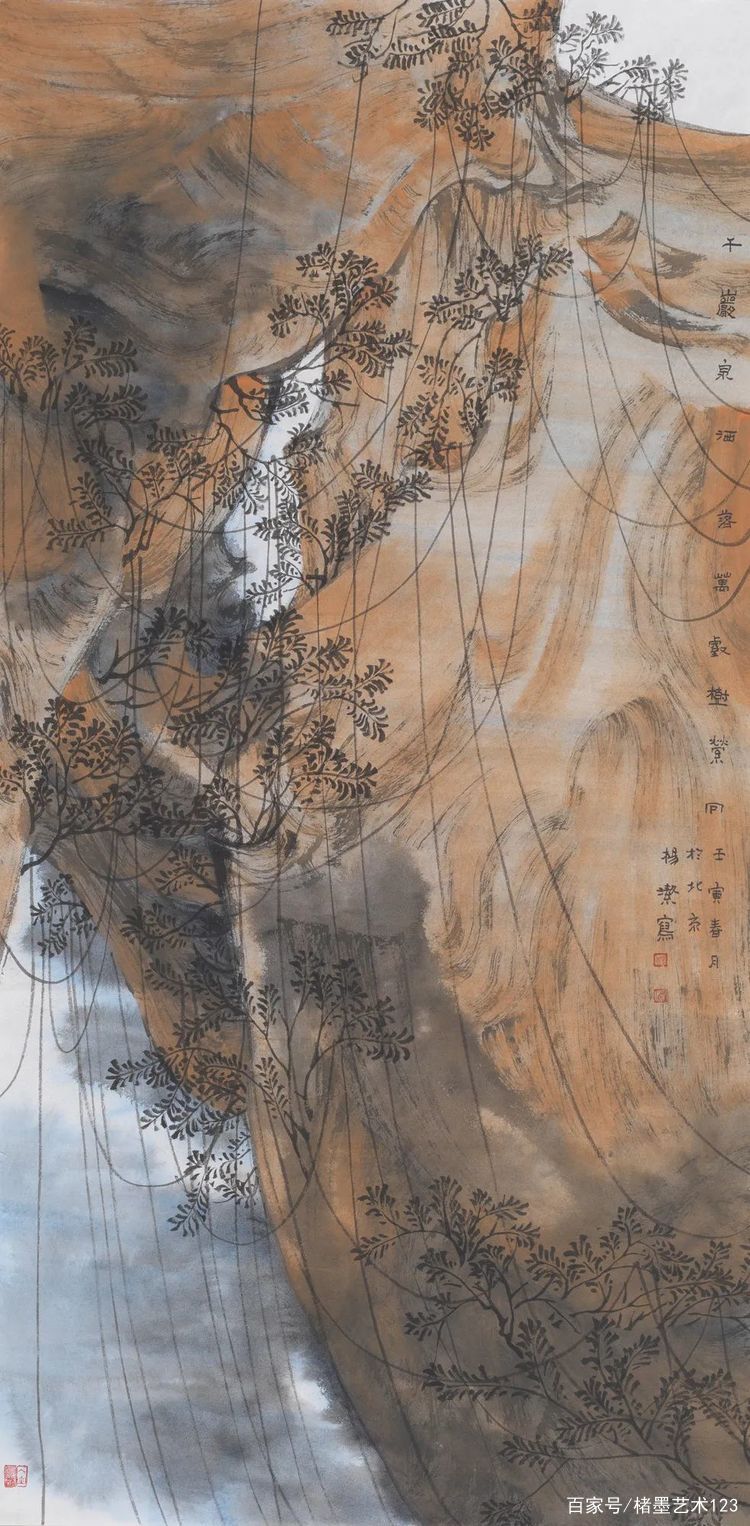 千巖泉洒落萬壑樹縈回
壬寅春月
於北京
楊潔寫
百家号/楮墨艺术123